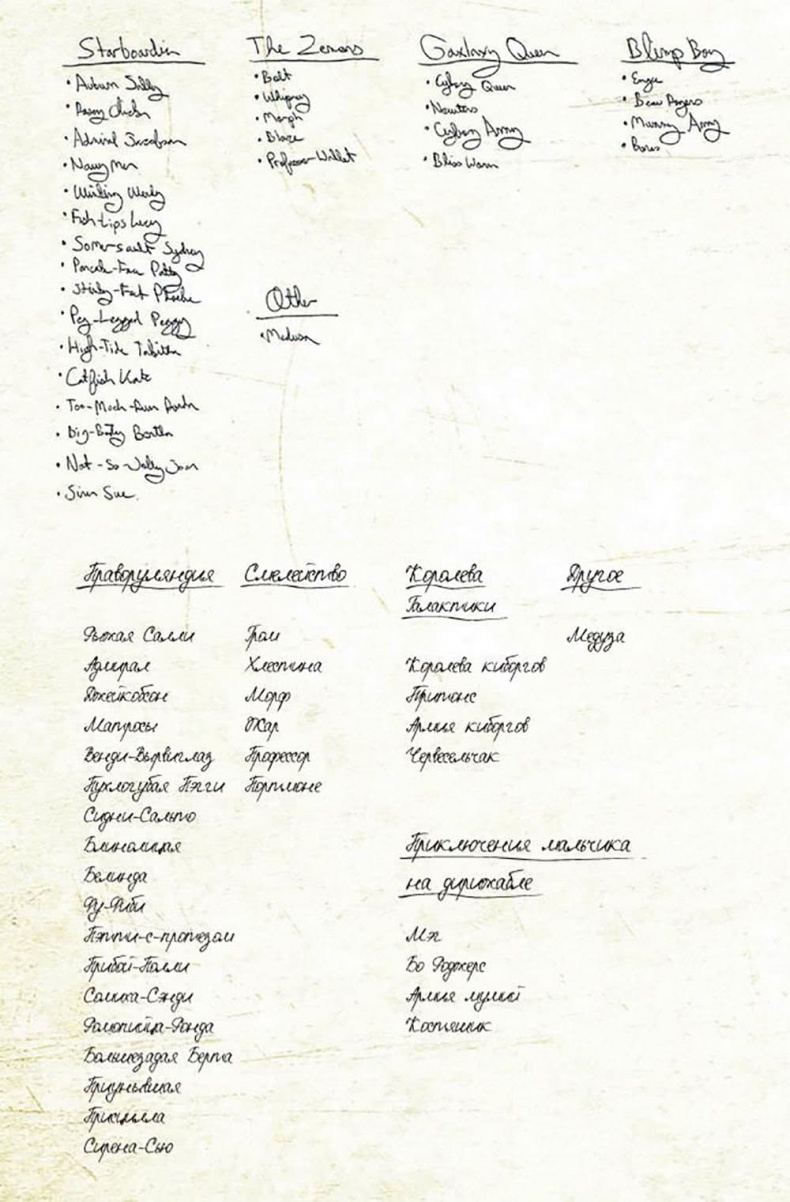 Starboardia
• Auburn Sally
• Chicken
• Admiral Jacobson
• Navy Men
• Winking Wendy
• Fish-Lips Lucy
• Somersault Sydney
• Pancake-Face Patty
• Stinky-Feet Phoebe
• Peg-Legged Peggy
• High-Tide Tabitha
• Catfish Kate
• Too-Much-Rum Ronda
• Big-Booty Bertha
• Not-So-Jolly Joan
• Siren Sue
The Zimons
• Bolt
• Whipney
• Morph
• Blaze
• Professor Wallet
Other
• Medusa
Galaxy Queen
• Cyborg Queen
• Newters
• Cyborg Army
• Bliss Worm
Blimp Boy
• Beau Rogers
• Mummy Army
• Bones
Праворуляндия
Рыжая Салли
Адмирал
Джейкобсон
Матросы
Венди-Вырвиглаз
Пухлогубая Пэгги
Сидни-Сальто
Блинолицая
Белинда
Фу-Фиби
Пэтти-с-протезом
Прибой-Полли
Сомиха-Сэнди
Ромопийца-Ронда
Большезадая Берта
Приунывшая
Присцилла
Сирена-Сью
Смелейство
Гром
Хлестина
Морф
Жар
Профессор
Портмоне
Королева
Галактики
Королева киборгов
Притонс
Армия киборгов
Червесельчак
Другое
Медуза
Приключения мальчика
на дирижабле
Мэ
Бо Роджерс
Армия мумий
Костяшик